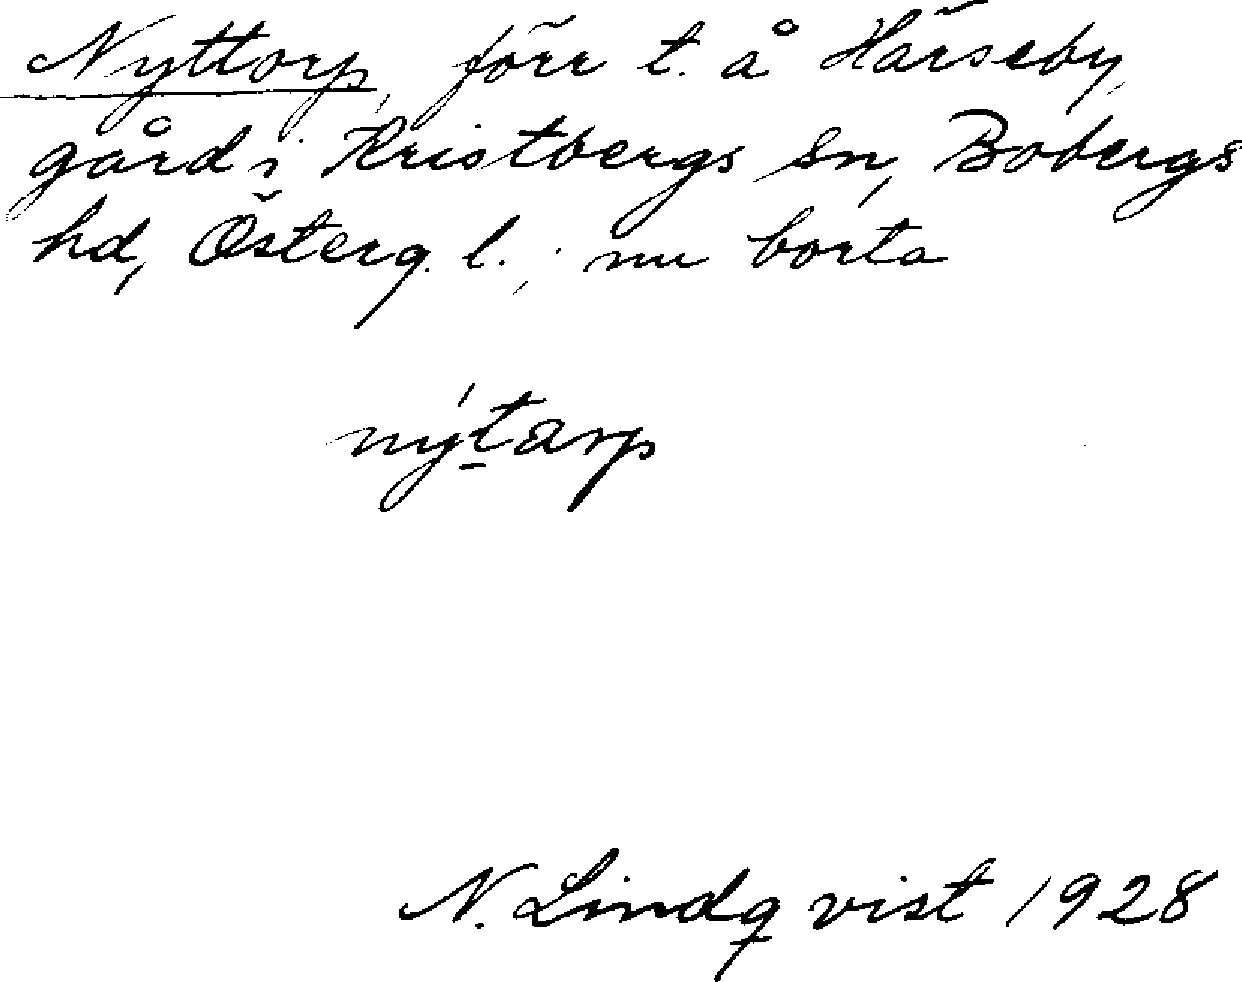 Nyttorp, förr t. å Härseby,
gård i Kristbergs sn, Bobergs
hd, Österg. l.; nu borta
nýtarp
N. Lindqvist 1928